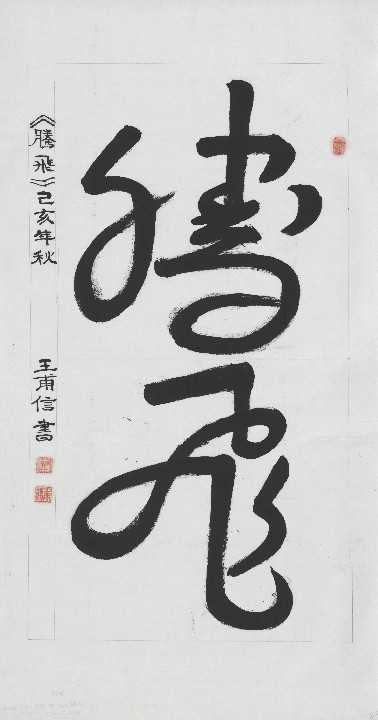 腾飛
《腾飛》己亥年秋 王甫信書